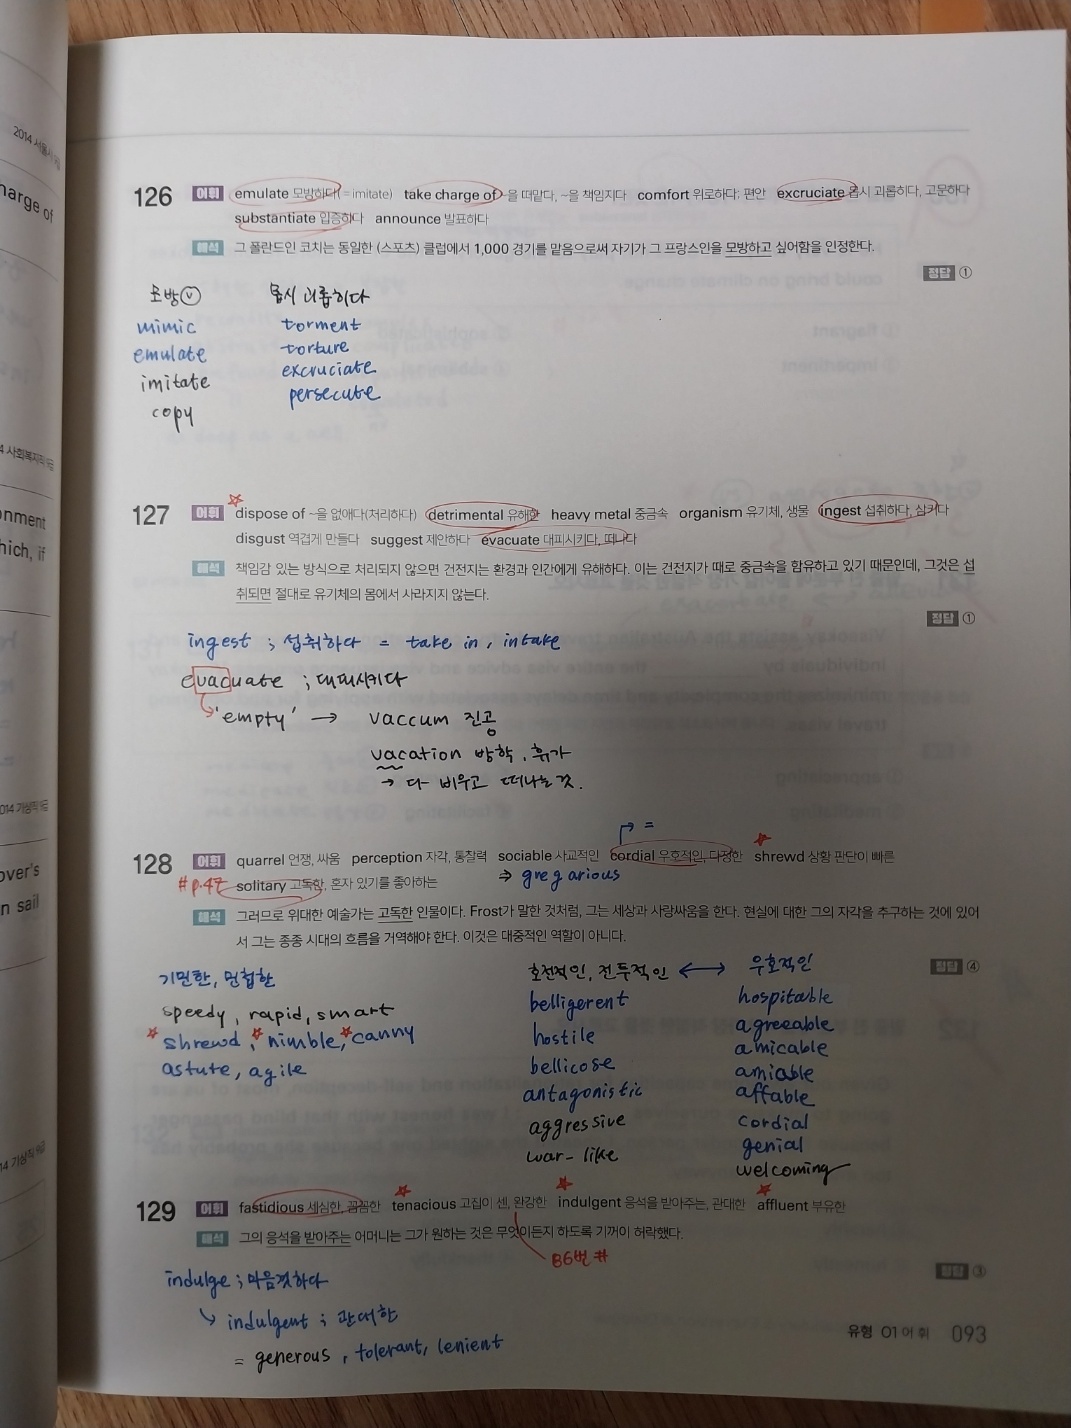 2014 서울시 9급
harge of
4 사회복지직 9급
onment
hich, if
014 기상직 9급
over's
n sail
14 기상직 9급
126 어휘 emulate 모방하다(= imitate) take charge of ~을 떠맡다, ~을 책임지다 comfort 위로하다; 편안 excruciate 몹시 괴롭히다, 고문하다
substantiate 입증하다 announce 발표하다
해석 그 폴란드인 코치는 동일한 (스포츠) 클럽에서 1,000 경기를 맡음으로써 자기가 그 프랑스인을 모방하고 싶어함을 인정한다.
정답 ①
모방ⓥ 몹시 괴롭히다
mimic torment
emulate torture
imitate excruciate
copy persecute
127 어휘 dispose of ~을 없애다(처리하다) detrimental 유해한 heavy metal 중금속 organism 유기체, 생물 ingest 섭취하다, 삼키다
disgust 역겹게 만들다 suggest 제안하다 evacuate 대피시키다, 떠나다
해석 책임감 있는 방식으로 처리되지 않으면 건전지는 환경과 인간에게 유해하다. 이는 건전지가 때로 중금속을 함유하고 있기 때문인데, 그것은 섭
취되면 절대로 유기체의 몸에서 사라지지 않는다.
정답 ①
ingest ; 섭취하다 = take in, intake
evacuate ; 대피시키다
'empty' → vaccum 진공
vacation 방학, 휴가
→ 다 비우고 떠나는 것.
=
128 어휘 quarrel 언쟁, 싸움 perception 자각, 통찰력 sociable 사교적인 cordial 우호적인, 다정한 shrewd 상황 판단이 빠른
#p.47 solitary 고독한, 혼자 있기를 좋아하는 ⇒ gregarious
해석 그러므로 위대한 예술가는 고독한 인물이다. Frost가 말한 것처럼, 그는 세상과 사랑싸움을 한다. 현실에 대한 그의 자각을 추구하는 것에 있어
서 그는 종종 시대의 흐름을 거역해야 한다. 이것은 대중적인 역할이 아니다.
정답 ④
기민한, 민첩한 호전적인, 전투적인 ↔ 우호적인
speedy, rapid, smart belligerent hospitable
shrewd, nimble, canny hostile agreeable
astute, agile bellicose amicable
antagonistic amiable
aggressive affable
war-like cordial
genial
welcoming
129 어휘 fastidious 세심한, 꼼꼼한 tenacious 고집이 센, 완강한 indulgent 응석을 받아주는, 관대한 affluent 부유한
해석 그의 응석을 받아주는 어머니는 그가 원하는 것은 무엇이든지 하도록 기꺼이 허락했다.
86번 #
정답 ③
indulge ; 마음껏하다
↘ indulgent ; 관대한
= generous, tolerant, lenient
유형 01 어휘 093